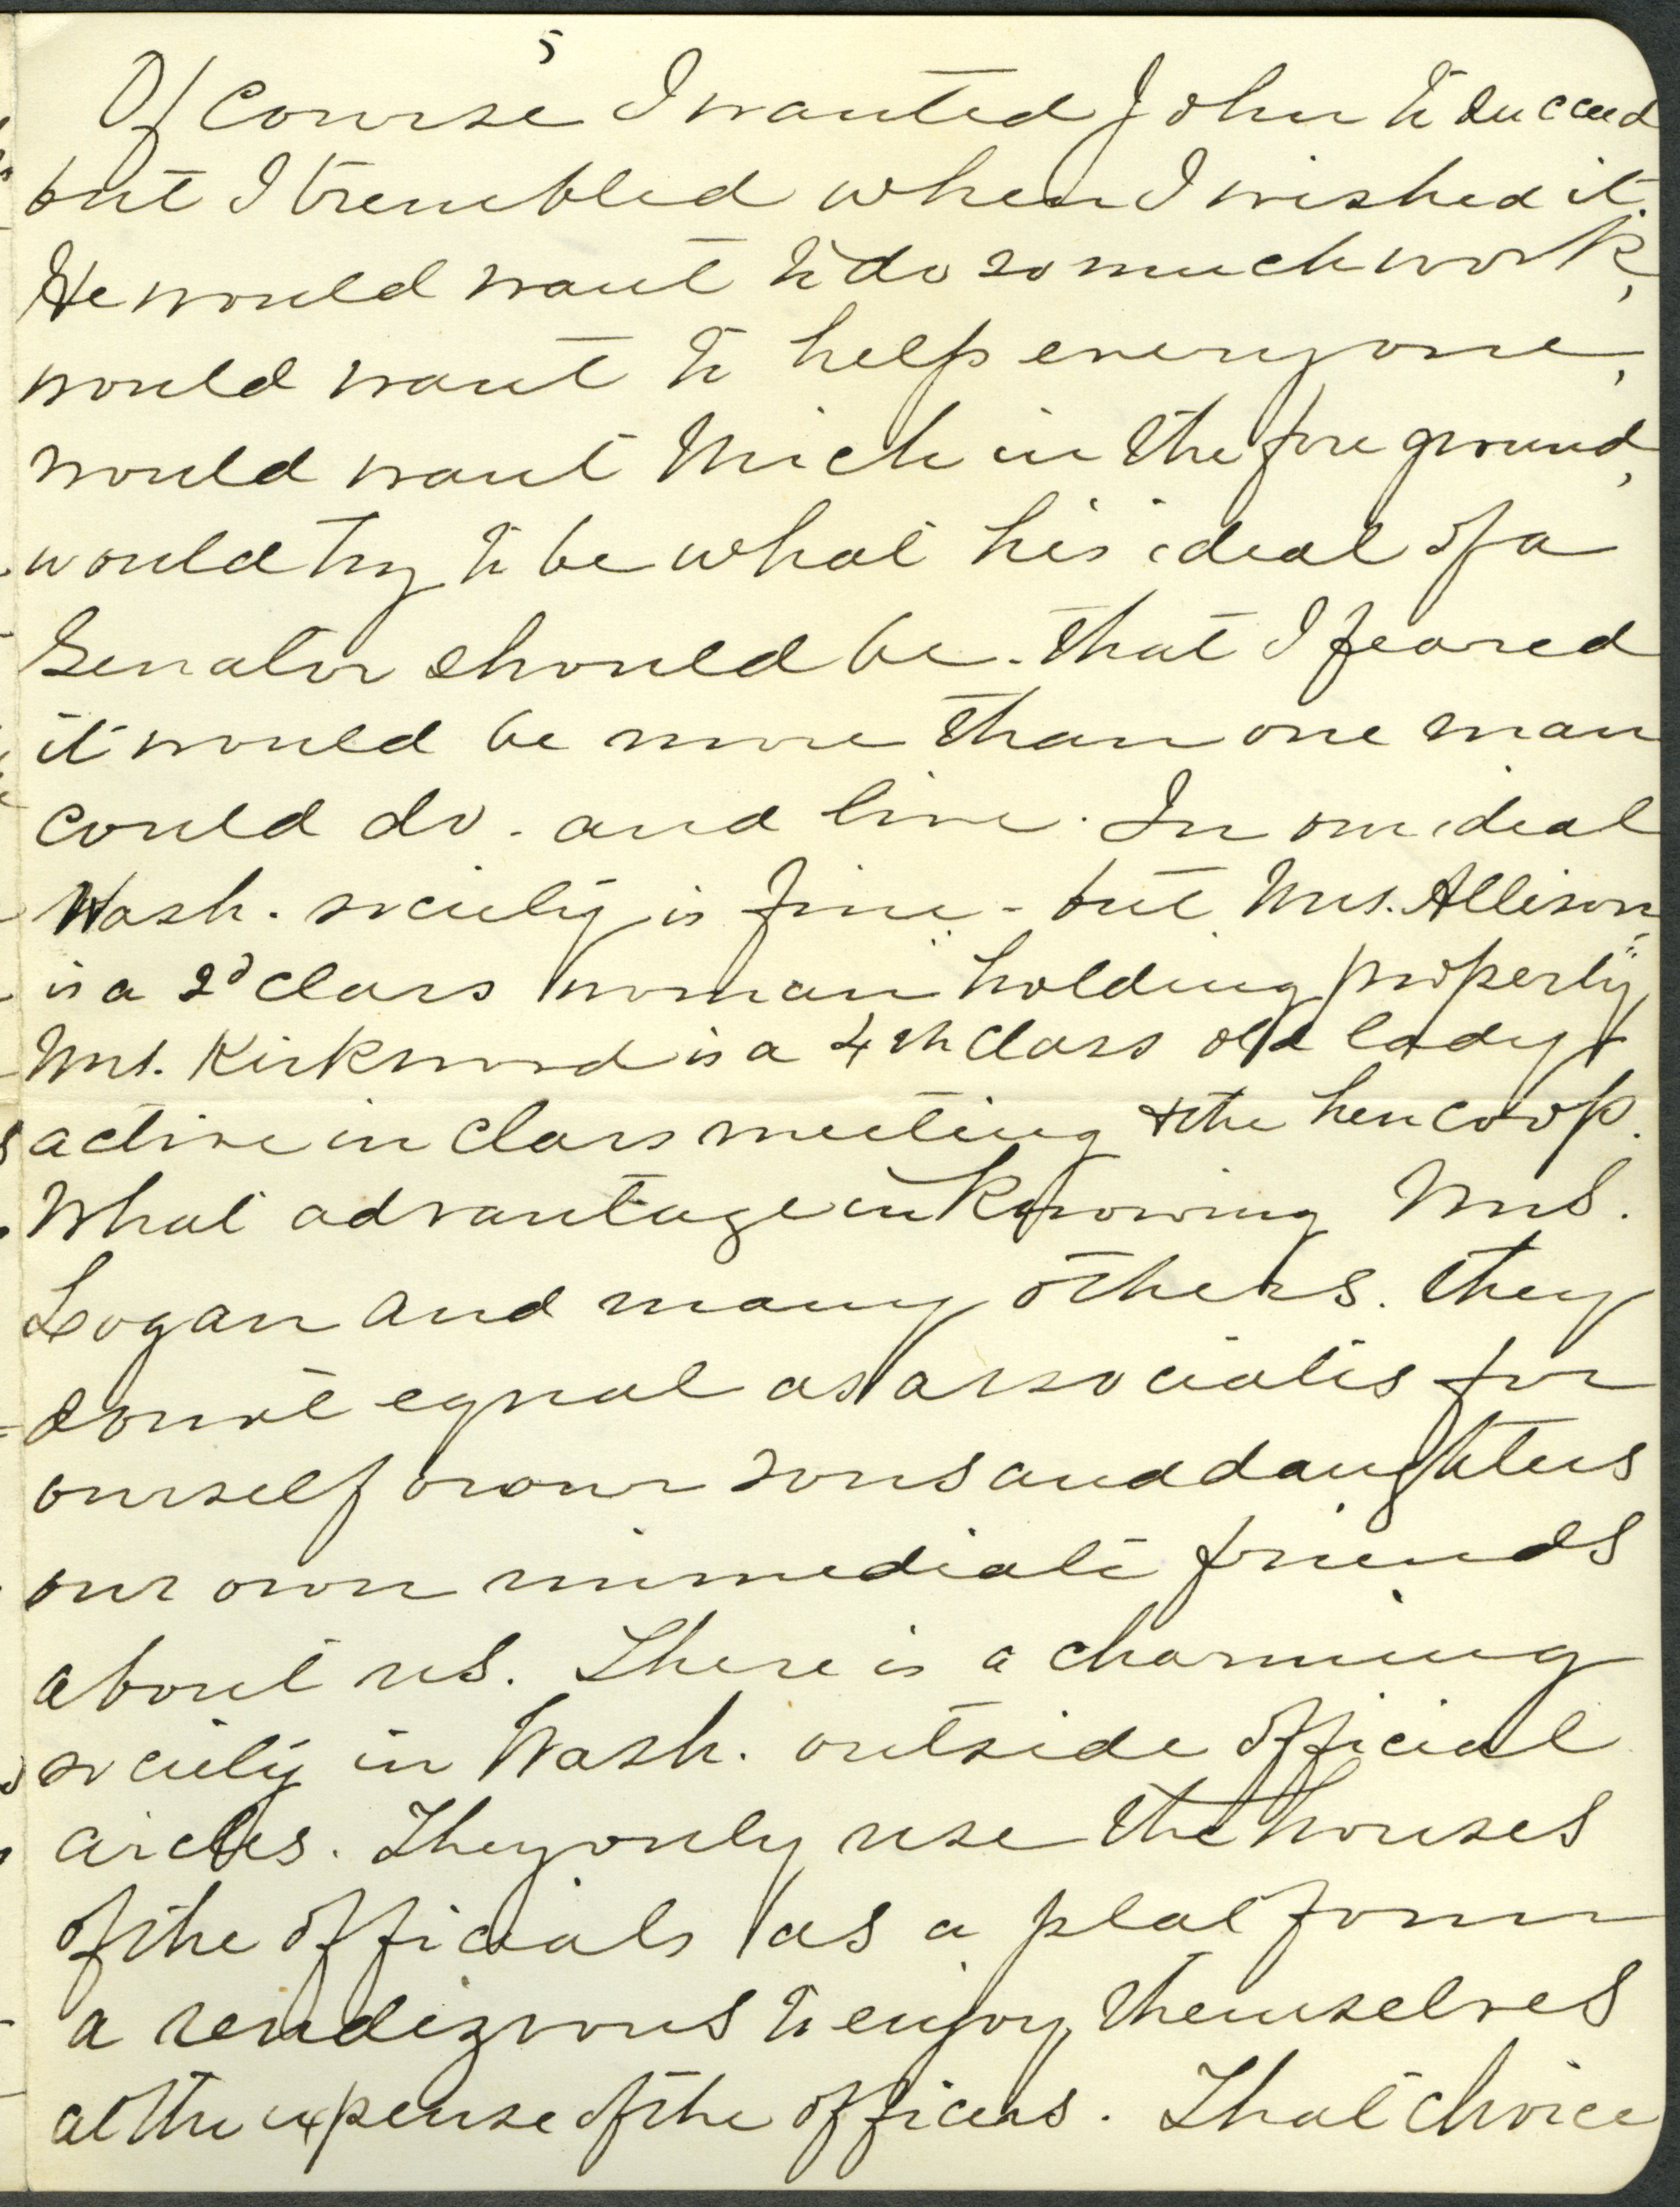 5
Of course I wanted John to succeed
but I trembled when I wished it.
He would want to do so much work,
would want to help everyone,
would want Mich in the fore ground,
would try to be what his ideal of a
Senator should be. that I feared
it would be more than one man
could do. and live. In our ideal
Wash. society is fine - but Mrs. Allison
is a 2d class woman "holding property"
Mrs. Kirkwood is a 4th class old lady
active in class meeting & the hen coop.
What advantage in knowing Mrs.
Logan and many others. they
don't equal as associates for
ourself or our sons and daughters
our own immediate friends
about us. There is a charming
society in Wash. outside official
circles. They only use the houses
of the officials as a platform
a rendezvous to enjoy themselves
at the expense of the officers. That choice